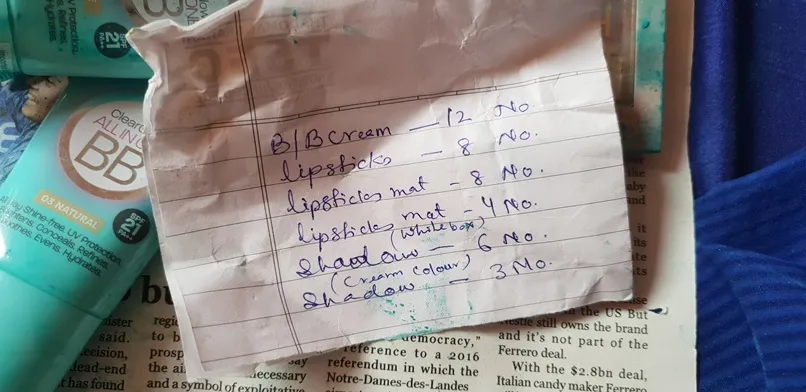 UV Protection,
SPF
21
PA++
Clear
ALL IN
BB
03 NATURAL
SPF
21
PA++
All day Shine-free, UV Protection,
Conceals, Refines,
Evens, Hydrates.
B/B Cream — 12 No.
lipsticks — 8 No.
lipsticks mat - 8 No.
lipsticks mat - 4 No.
(white box)
Shadow — 6 No.
(Cream Colour)
Shadow — 3 No.
said.
ecision,
has found
necessary
and a symbol of exploitative
democracy,"
reference to a 2016
referendum in which the
Notre-Dames-des-Landes
the US But
still owns the brand
and it's not part of the
Ferrero deal.
With the $2.8bn deal,
Italian candy maker Ferrero